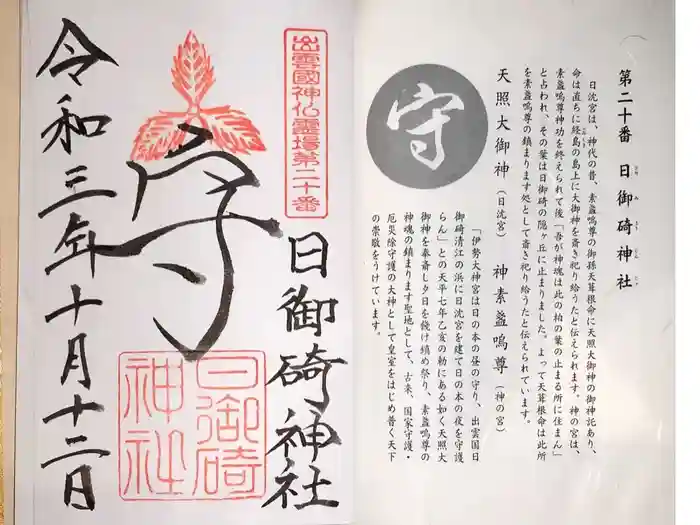 第二十番 日御碕神社
ひ み さき じん じゃ
日沈宮は、神代の昔、素盞嗚尊の御孫天葺根命に天照大御神の御神託あり、
命は直ちに経島の島上に大御神を斎き祀り給うたと伝えられます。神の宮は、
ふみしま
素盞嗚尊神功を終えられて後「吾が神魂は此の柏の葉の止まる所に住まん」
と占われ、その葉は日御碕の隠ヶ丘に止まりました。よって天葺根命は此所
を素盞嗚尊の鎮まります処として斎き祀り給うたと伝えられています。
天照大御神(日沈宮) 神素盞嗚尊(神の宮)
守
「伊勢大神宮は日の本の昼の守り、出雲国日
御碕清江の浜に日沈宮を建て日の本の夜を守護
らん」との天平七年乙亥の勅にある如く天照大
御神を奉斎し夕日を餞け鎮め祭り、素盞嗚尊の
神魂の鎮まります聖地として、古来、国家守護・
厄災除守護の大神として皇室をはじめ普く天下
の崇敬をうけています。
出雲國神仏霊場第二十番
日御碕神社
守
日御碕
神社
令和三年十月十二日